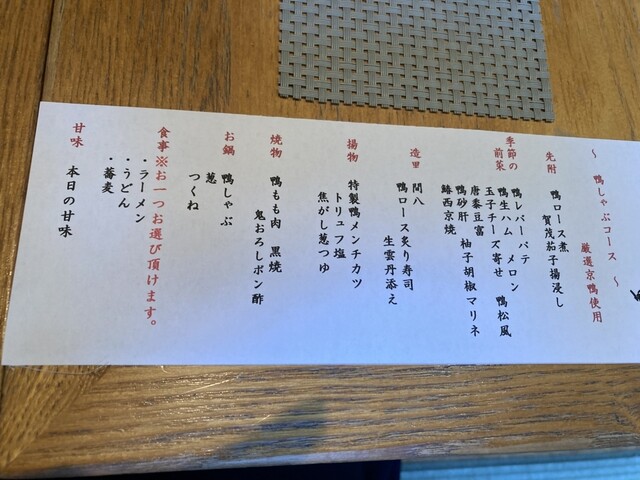 ～ 鴨しゃぶコース ～
厳選京鴨使用
先附
鴨ロース煮
賀茂茄子揚浸し
季節の
前菜
鴨レバーパテ
鴨生ハム メロン
玉子チーズ寄せ 鴨松風
唐黍豆富
鴨砂肝 柚子胡椒マリネ
鰆西京焼
造里
間八
鴨ロース炙り寿司
生雲丹添え
揚物
特製鴨メンチカツ
トリュフ塩
焦がし葱つゆ
焼物
鴨もも肉 黒焼
鬼おろしポン酢
お鍋
鴨しゃぶ
葱
つくね
食事※お一つお選び頂けます。
・ラーメン
・うどん
・蕎麦
甘味
本日の甘味